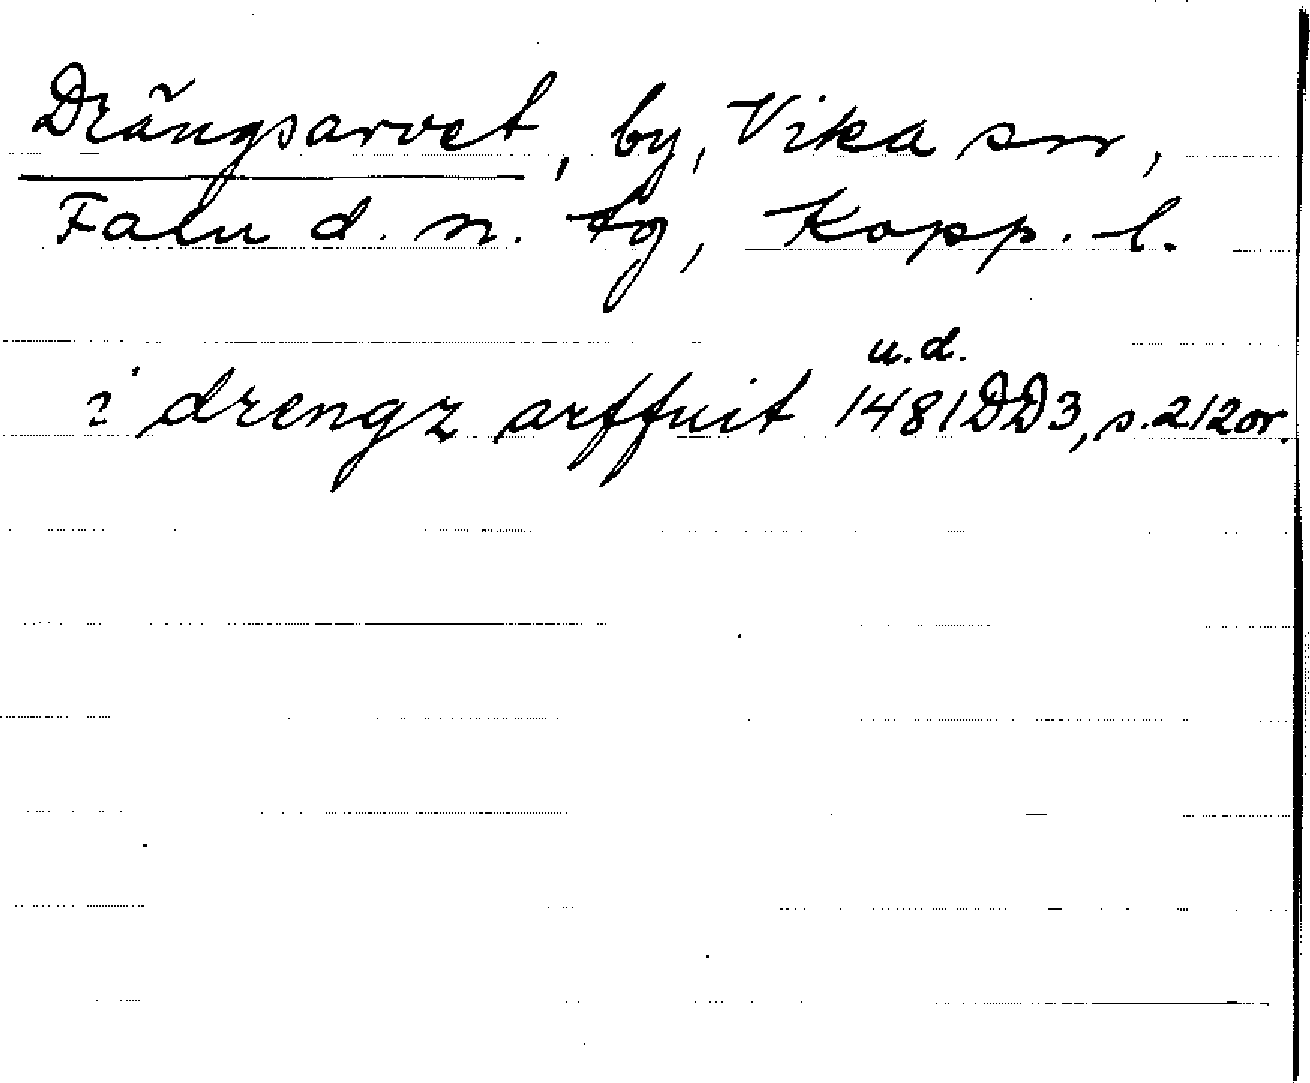 Drängsarvet, by, Vika sn,
Falu d. n. tg, Kopp. l.
u.d.
i drengz arffuit 1481 DD3, s. 212 or.